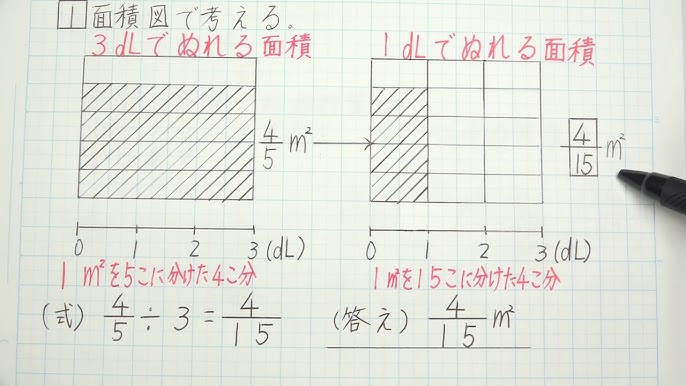 1 面積図で考える。
3dLでぬれる面積 1dLでぬれる面積
4/5 m² 4/15 m²
0 1 2 3 (dL) 0 1 2 3 (dL)
1m²を5こに分けた4こ分 1m²を15こに分けた4こ分
(式) 4/5 ÷ 3 = 4/15 (答え) 4/15 m²